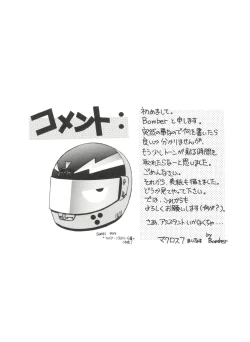 コメント：
初めまして。
Bomberと申します。
突然の事なので何を書いたら
良いか分かりませんが、
もう少しトーンが削る時間を
取れたらなーと思いました。
ごめんなさい。
それから、表紙も描きました。
どうか見てやって下さい。
では、これからも
よろしくお願いします(何が？)。
さあ、アシスタントいかなくちゃ…
by
マクロス7 Bomber